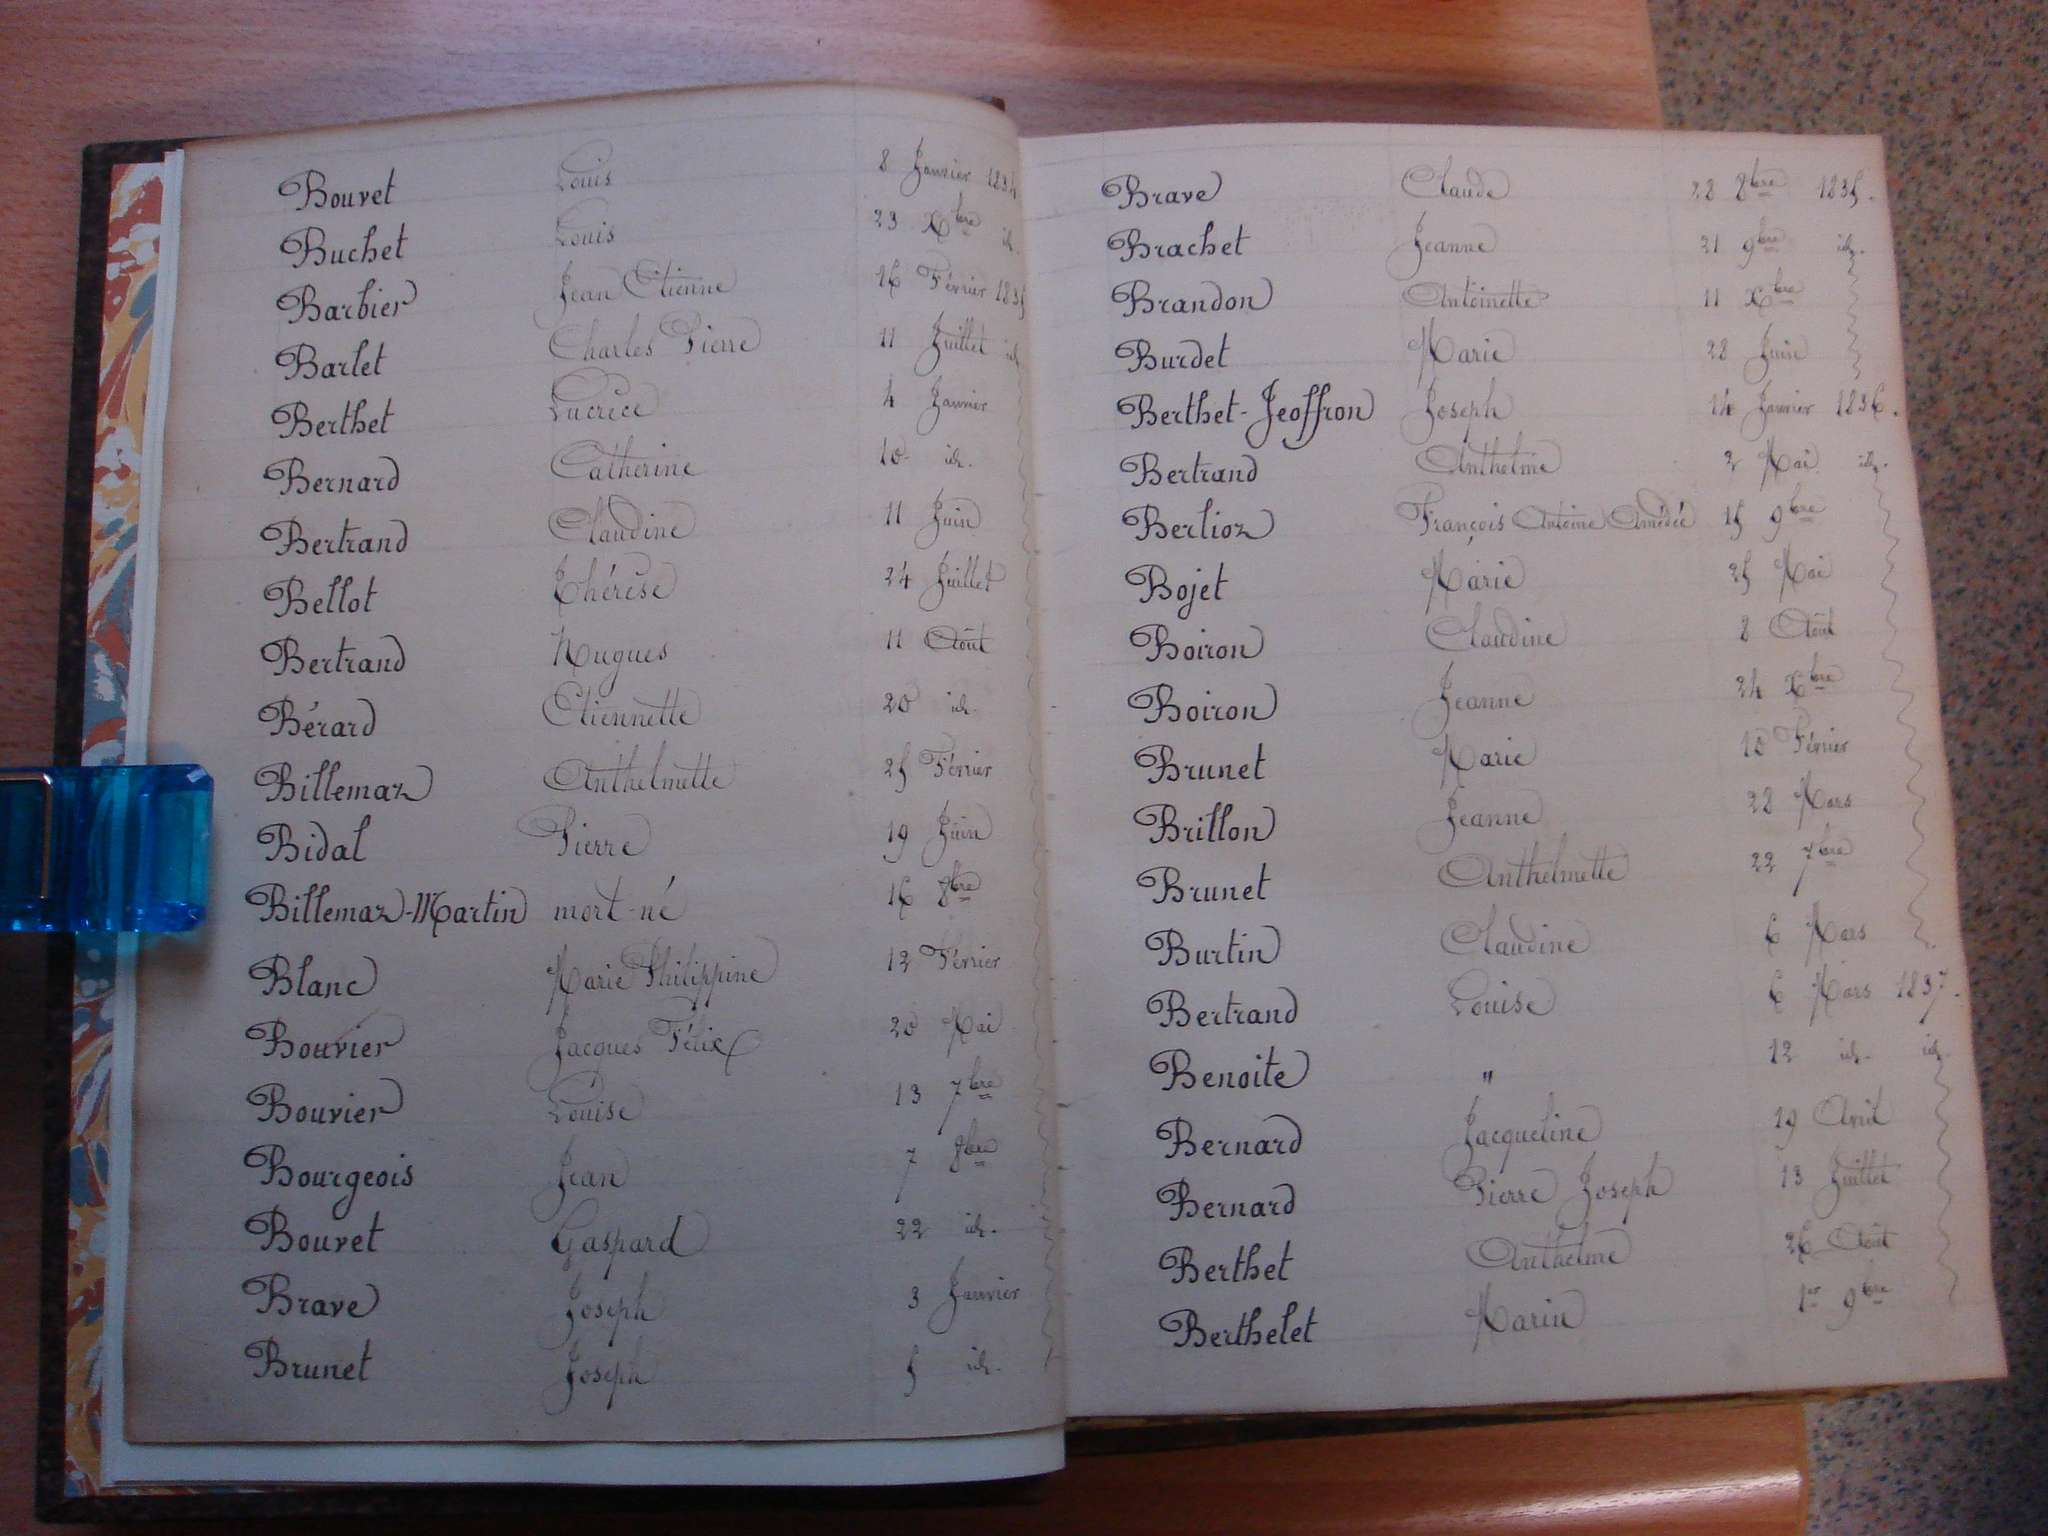 Bouvet Louis 8 Janvier 1834
Buchet Louis 23 Xbre id.
Barbier Jean Etienne 16 Février 1835
Barlet Charles Pierre 11 Juillet id
Berthet Lucrèce 4 Janvier
Bernard Catherine 10 id.
Bertrand Claudine 11 Juin
Bellot Thérèse 24 Juillet
Bertrand Hugues 11 Août
Bérard Etiennette 20 id.
Billemaz Anthelmette 25 Février
Bidal Pierre 19 Juin
Billemaz-Martin mort-né 16 8bre
Blanc Marie Philippine 12 Février
Bouvier Jacques Félix 20 Mai
Bouvier Louise 13 7bre
Bourgeois Jean 7 8bre
Bouvet Gaspard 22 id.
Brave Joseph 3 Janvier
Brunet Joseph 5 id.
Brave Claude 28 8bre 1835.
Brachet Jeanne 21 9bre id.
Brandon Antoinette 11 Xbre
Burdet Marie 28 Juin
Berthet-Jeoffron Joseph 14 Janvier 1836.
Bertrand Anthelme 2 Mai id.
Berlioz François Antoine Amédée 15 9bre
Bojet Marie 25 Mai
Boiron Claudine 8 Août
Boiron Jeanne 24 Xbre
Brunet Marie 10 Février
Brillon Jeanne 28 Mars
Brunet Anthelmette 22 7bre
Burtin Claudine 6 Mars
Bertrand Louise 6 Mars 1837.
Benoite " 12 id. id.
Bernard Jacqueline 19 Avril
Bernard Pierre Joseph 13 Juillet
Berthet Anthelme 26 Août
Berthelet Marin 1er 9bre